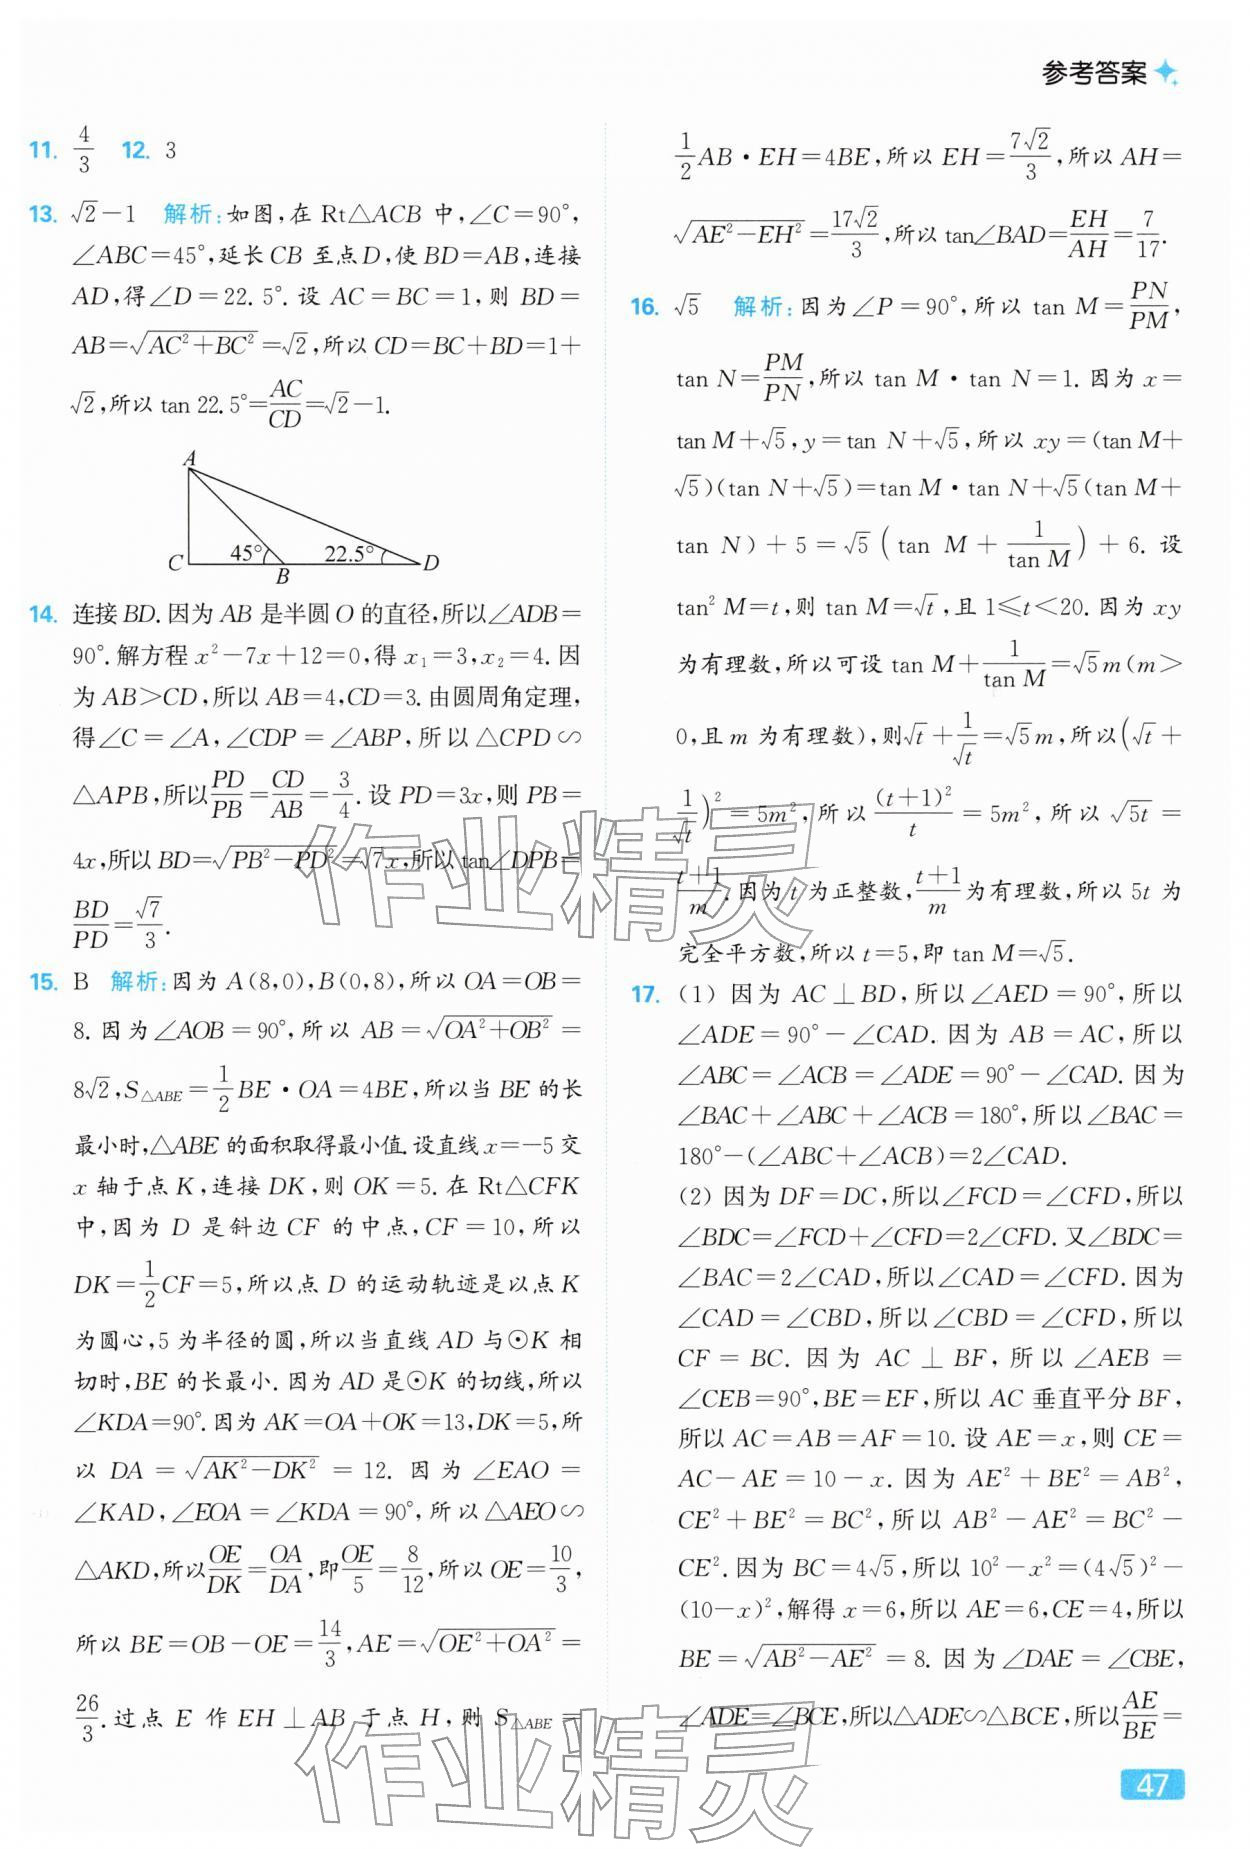 参考答案
11. 4/3 12. 3
13. √2-1 解析:如图,在 Rt△ACB 中,∠C=90°,
∠ABC=45°,延长 CB 至点 D,使 BD=AB,连接
AD,得∠D=22.5°.设 AC=BC=1,则 BD=
AB=√(AC²+BC²)=√2,所以 CD=BC+BD=1+
√2,所以 tan 22.5°=AC/CD=√2-1.
A
C 45° B 22.5° D
14. 连接 BD.因为 AB 是半圆 O 的直径,所以∠ADB=
90°.解方程 x²-7x+12=0,得 x₁=3,x₂=4.因
为 AB>CD,所以 AB=4,CD=3.由圆周角定理,
得∠C=∠A,∠CDP=∠ABP,所以△CPD∽
△APB,所以PD/PB=CD/AB=3/4.设 PD=3x,则 PB=
4x,所以 BD=√(PB²-PD²)=√7x,所以 tan∠DPB=
BD/PD=√7/3.
15. B 解析:因为 A(8,0),B(0,8),所以 OA=OB=
8.因为∠AOB=90°,所以 AB=√(OA²+OB²)=
8√2,S△ABE=1/2BE·OA=4BE,所以当 BE 的长
最小时,△ABE 的面积取得最小值.设直线 x=-5 交
x 轴于点 K,连接 DK,则 OK=5.在 Rt△CFK
中,因为 D 是斜边 CF 的中点,CF=10,所以
DK=1/2CF=5,所以点 D 的运动轨迹是以点 K
为圆心,5 为半径的圆,所以当直线 AD 与⊙K 相
切时,BE 的长最小.因为 AD 是⊙K 的切线,所以
∠KDA=90°.因为 AK=OA+OK=13,DK=5,所
以 DA=√(AK²-DK²)=12.因为∠EAO=
∠KAD,∠EOA=∠KDA=90°,所以△AEO∽
△AKD,所以OE/DK=OA/DA,即OE/5=8/12,所以 OE=10/3,
所以 BE=OB-OE=14/3,AE=√(OE²+OA²)=
26/3.过点 E 作 EH⊥AB 于点 H,则 S△ABE=
1/2AB·EH=4BE,所以 EH=7√2/3,所以 AH=
√(AE²-EH²)=17√2/3,所以 tan∠BAD=EH/AH=7/17.
16. √5 解析:因为∠P=90°,所以 tan M=PN/PM,
tan N=PM/PN,所以 tan M·tan N=1.因为 x=
tan M+√5,y=tan N+√5,所以 xy=(tan M+
√5)(tan N+√5)=tan M·tan N+√5(tan M+
tan N)+5=√5(tan M+1/tan M)+6.设
tan² M=t,则 tan M=√t,且 1≤t<20.因为 xy
为有理数,所以可设 tan M+1/tan M=√5m(m>
0,且 m 为有理数),则√t+1/√t=√5m,所以(√t+
1/√t)²=5m²,所以(t+1)²/t=5m²,所以√5t=
t+1/m.因为 t 为正整数,t+1/m为有理数,所以 5t 为
完全平方数,所以 t=5,即 tan M=√5.
17. (1) 因为 AC⊥BD,所以∠AED=90°,所以
∠ADE=90°-∠CAD.因为 AB=AC,所以
∠ABC=∠ACB=∠ADE=90°-∠CAD.因为
∠BAC+∠ABC+∠ACB=180°,所以∠BAC=
180°-(∠ABC+∠ACB)=2∠CAD.
(2) 因为 DF=DC,所以∠FCD=∠CFD,所以
∠BDC=∠FCD+∠CFD=2∠CFD.又∠BDC=
∠BAC=2∠CAD,所以∠CAD=∠CFD.因为
∠CAD=∠CBD,所以∠CBD=∠CFD,所以
CF=BC.因为 AC⊥BF,所以∠AEB=
∠CEB=90°,BE=EF,所以 AC 垂直平分 BF,
所以 AC=AB=AF=10.设 AE=x,则 CE=
AC-AE=10-x.因为 AE²+BE²=AB²,
CE²+BE²=BC²,所以 AB²-AE²=BC²-
CE².因为 BC=4√5,所以 10²-x²=(4√5)²-
(10-x)²,解得 x=6,所以 AE=6,CE=4,所以
BE=√(AB²-AE²)=8.因为∠DAE=∠CBE,
∠ADE=∠BCE,所以△ADE∽△BCE,所以AE/BE=
作业精灵
作业精灵
47